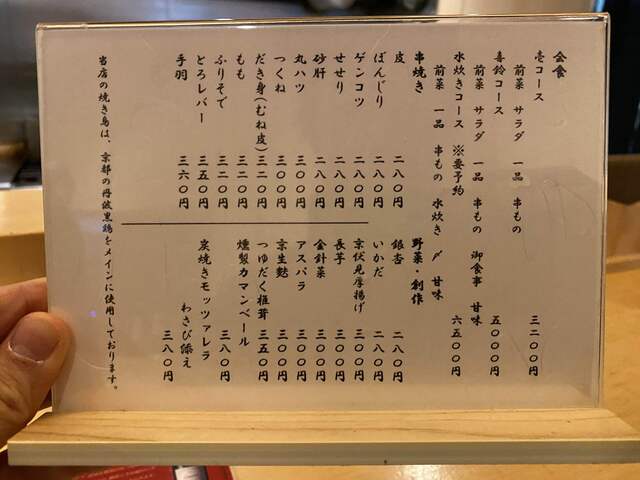 会食
壱コース 三二〇〇円
前菜 サラダ 一品 串もの
喜鈴コース 五〇〇〇円
前菜 サラダ 一品 串もの 御食事 甘味
水炊きコース ※要予約 六五〇〇円
前菜 一品 串もの 水炊き 〆 甘味
串焼き
皮 二八〇円
ぼんじり 二八〇円
ゲンコツ 二八〇円
せせり 二八〇円
砂肝 二八〇円
丸ハツ 三〇〇円
つくね 三〇〇円
だき身(むね皮) 三二〇円
もも 三二〇円
ふりそで 三二〇円
とろレバー 三五〇円
手羽 三六〇円
野菜・創作
銀杏 二八〇円
いかだ 二八〇円
京伏見厚揚げ 三〇〇円
長芋 三〇〇円
金針菜 三〇〇円
アスパラ 三〇〇円
京生麩 三〇〇円
つゆだく椎茸 三五〇円
燻製カマンベール 三八〇円
炭焼きモッツァレラ
わさび添え 三八〇円
当店の焼き鳥は、京都の丹波黒鶏をメインに使用しております。